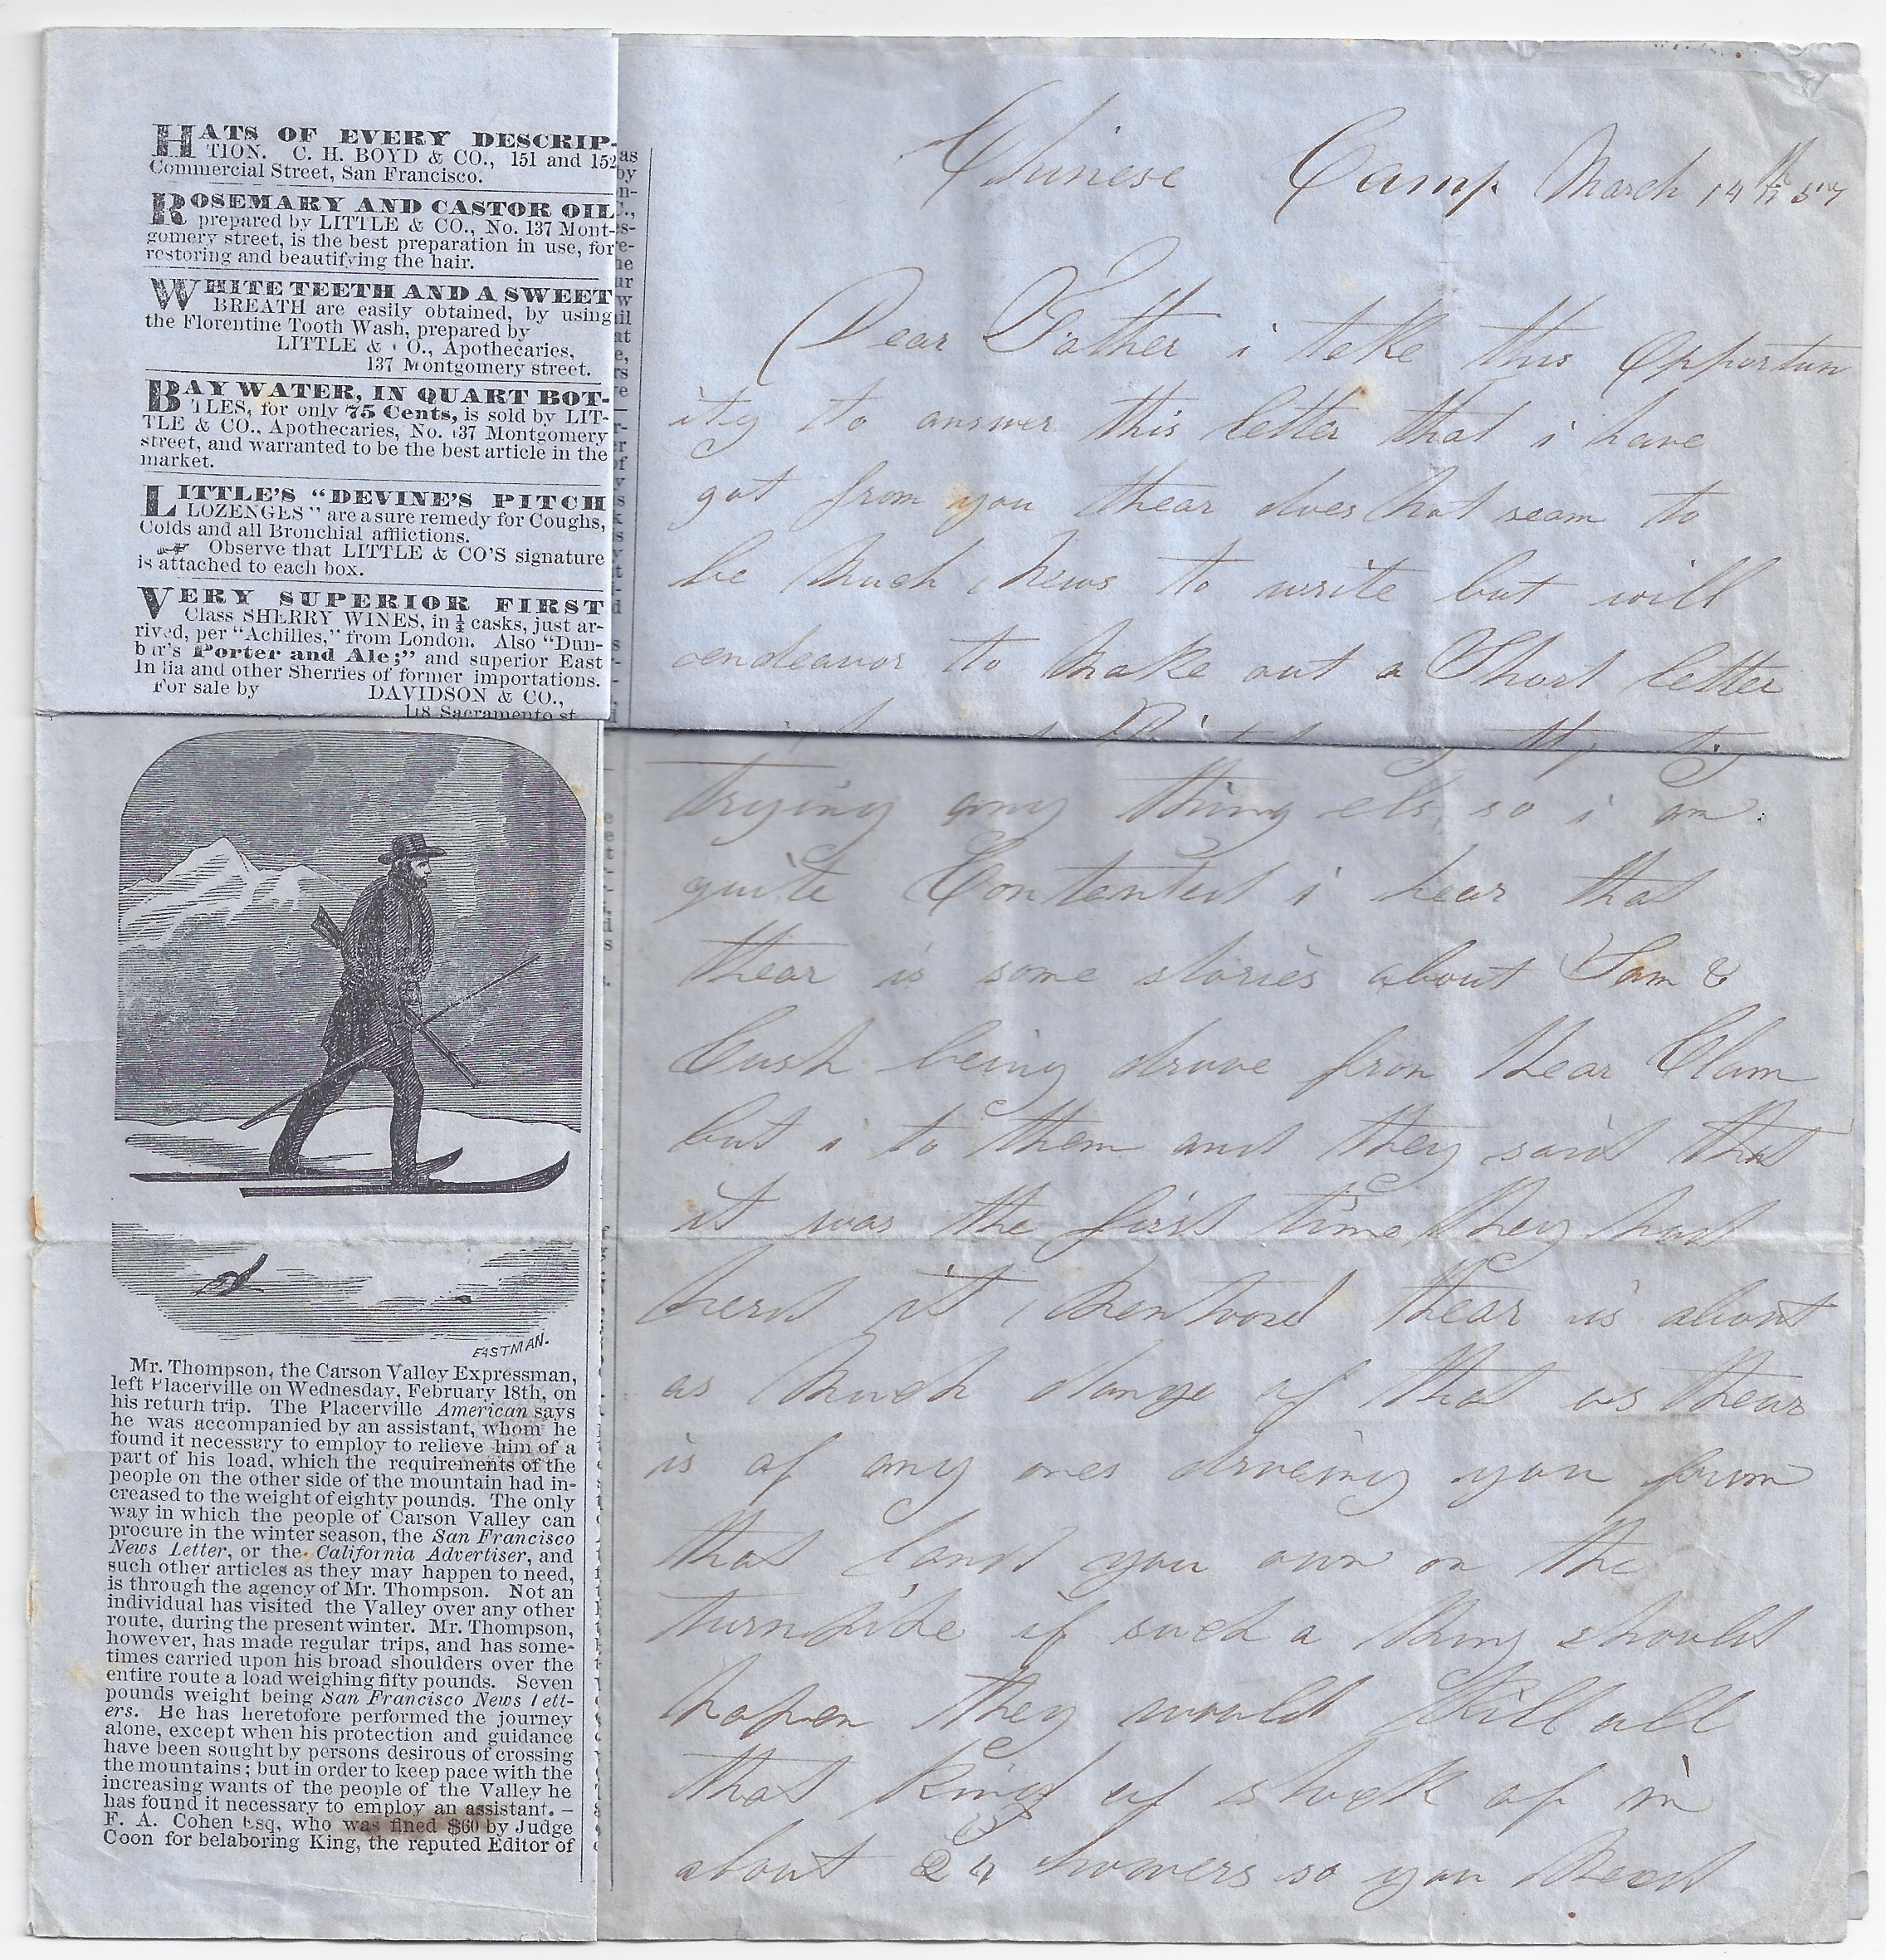 HATS OF EVERY DESCRIP-
TION. C. H. BOYD & CO., 151 and 152
Commercial Street, San Francisco.
ROSEMARY AND CASTOR OIL
prepared by LITTLE & CO., No. 137 Mont-
gomery street, is the best preparation in use, for
restoring and beautifying the hair.
WHITE TEETH AND A SWEET
BREATH are easily obtained, by using
the Florentine Tooth Wash, prepared by
LITTLE & CO., Apothecaries,
137 Montgomery street.
BAY WATER, IN QUART BOT-
TLES, for only 75 Cents, is sold by LIT-
TLE & CO., Apothecaries, No. 137 Montgomery
street, and warranted to be the best article in the
market.
LITTLE'S "DEVINE'S PITCH
LOZENGES" are a sure remedy for Coughs,
Colds and all Bronchial afflictions.
Observe that LITTLE & CO'S signature
is attached to each box.
VERY SUPERIOR FIRST
Class SHERRY WINES, in ¼ casks, just ar-
rived, per "Achilles," from London. Also "Dun-
bar's Porter and Ale;" and superior East
India and other Sherries of former importations.
For sale by DAVIDSON & CO.,
148 Sacramento st.
EASTMAN.
Mr. Thompson, the Carson Valley Expressman,
left Placerville on Wednesday, February 18th, on
his return trip. The Placerville American says
he was accompanied by an assistant, whom he
found it necessury to employ to relieve him of a
part of his load, which the requirements of the
people on the other side of the mountain had in-
creased to the weight of eighty pounds. The only
way in which the people of Carson Valley can
procure in the winter season, the San Francisco
News Letter, or the California Advertiser, and
such other articles as they may happen to need,
is through the agency of Mr. Thompson. Not an
individual has visited the Valley over any other
route, during the present winter. Mr. Thompson,
however, has made regular trips, and has some-
times carried upon his broad shoulders over the
entire route a load weighing fifty pounds. Seven
pounds weight being San Francisco News Lett-
ers. He has heretofore performed the journey
alone, except when his protection and guidance
have been sought by persons desirous of crossing
the mountains; but in order to keep pace with the
increasing wants of the people of the Valley he
has found it necessary to employ an assistant. –
F. A. Cohen Esq, who was fined $60 by Judge
Coon for belaboring King, the reputed Editor of
Chinese Camp March 14th 57
Dear Father i take this opportun
ity to answer this letter that i have
got from you thear does not seam to
be much news to write but will
endeavor to make out a Short letter
trying any thing els so i am
quite Contented i hear that
thear is some stories about Sam &
Cush being drove from thear Clam
but i to them and they said that
it was the first time they had
herd it thear is about
as much dange of that as thear
is of any ones driveing you from
that land you own on the
turnpike if such a thing should
hapen they would Kill all
that kind of stock of in
about 24 howers so you need